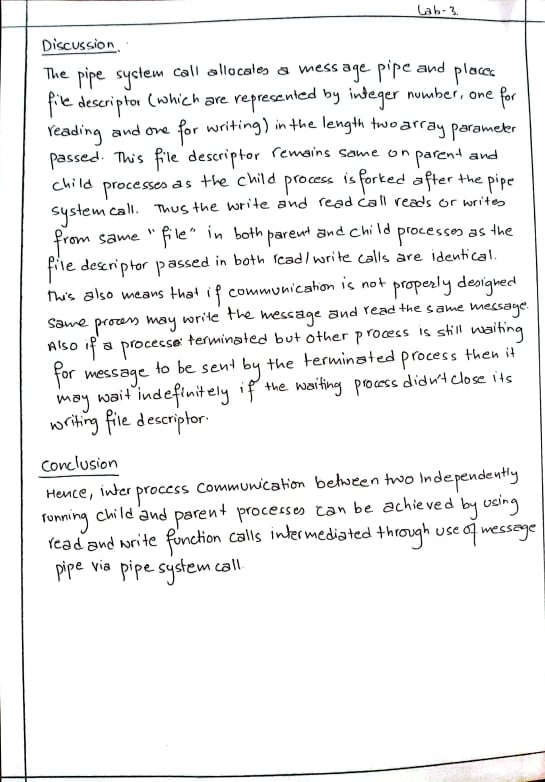 Lab-3.
Discussion.
The pipe system call allocates a message pipe and places
file descriptor (which are represented by integer number, one for
reading and one for writing) in the length two array parameter
passed. This file descriptor remains same on parent and
child processes as the child process is forked after the pipe
system call. Thus the write and read call reads or writes
from same "file" in both parent and child processes as the
file descriptor passed in both read/write calls are identical.
This also means that if communication is not properly designed
same process may write the message and read the same message.
Also if a process terminated but other process is still waiting
for message to be sent by the terminated process then it
may wait indefinitely if the waiting process didn't close its
writing file descriptor.
Conclusion
Hence, inter process communication between two Independently
running child and parent processes can be achieved by using
read and write function calls intermediated through use of message
pipe via pipe system call.